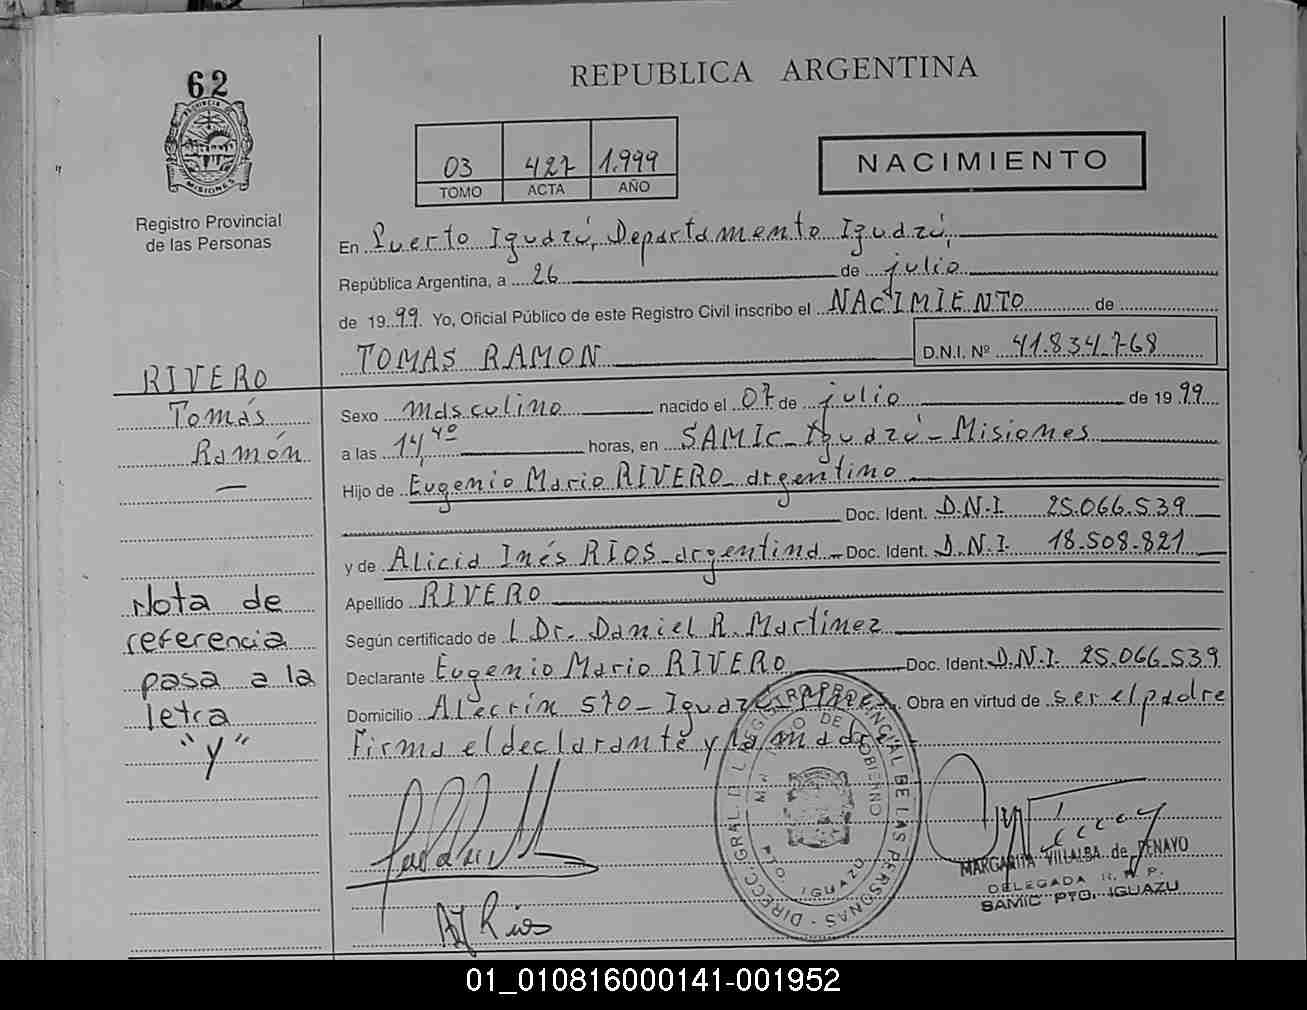 62
PROVINCIA DE
MISIONES
Registro Provincial
de las Personas
REPUBLICA ARGENTINA
03 427 1.999
TOMO ACTA AÑO
NACIMIENTO
En Puerto Iguazú, Departamento Iguazú,
República Argentina, a 26 de julio
de 1999. Yo, Oficial Público de este Registro Civil inscribo el NACIMIENTO de
TOMAS RAMON D.N.I. Nº 41.834.768
RIVERO
Tomás
Ramón
Sexo masculino nacido el 07 de julio de 1999
a las 14,40 horas, en SAMIC - Iguazú - Misiones
Hijo de Eugenio Mario RIVERO - argentino
Doc. Ident. D.N.I. 25.066.539
y de Alicia Inés RIOS - argentina - Doc. Ident. D.N.I. 18.508.821
Apellido RIVERO
Según certificado de l Dr. Daniel R. Martinez
Declarante Eugenio Mario RIVERO Doc. Ident. D.N.I. 25.066.539
Domicilio Alecrín 570 - Obra en virtud de ser el padre
Firma el declarante y la madre
Nota de
referencia
pasa a la
letra
"Y"
DIRECC. GRAL. D L REGISTRO PROVINCIAL DE LAS PERSONAS
M DE GOBIERNO
PTO IGUAZU
AI Rios
MARGARITA VILLALBA de PENAYO
DELEGADA R. P. P.
SAMIC PTO. IGUAZU
01_010816000141-001952